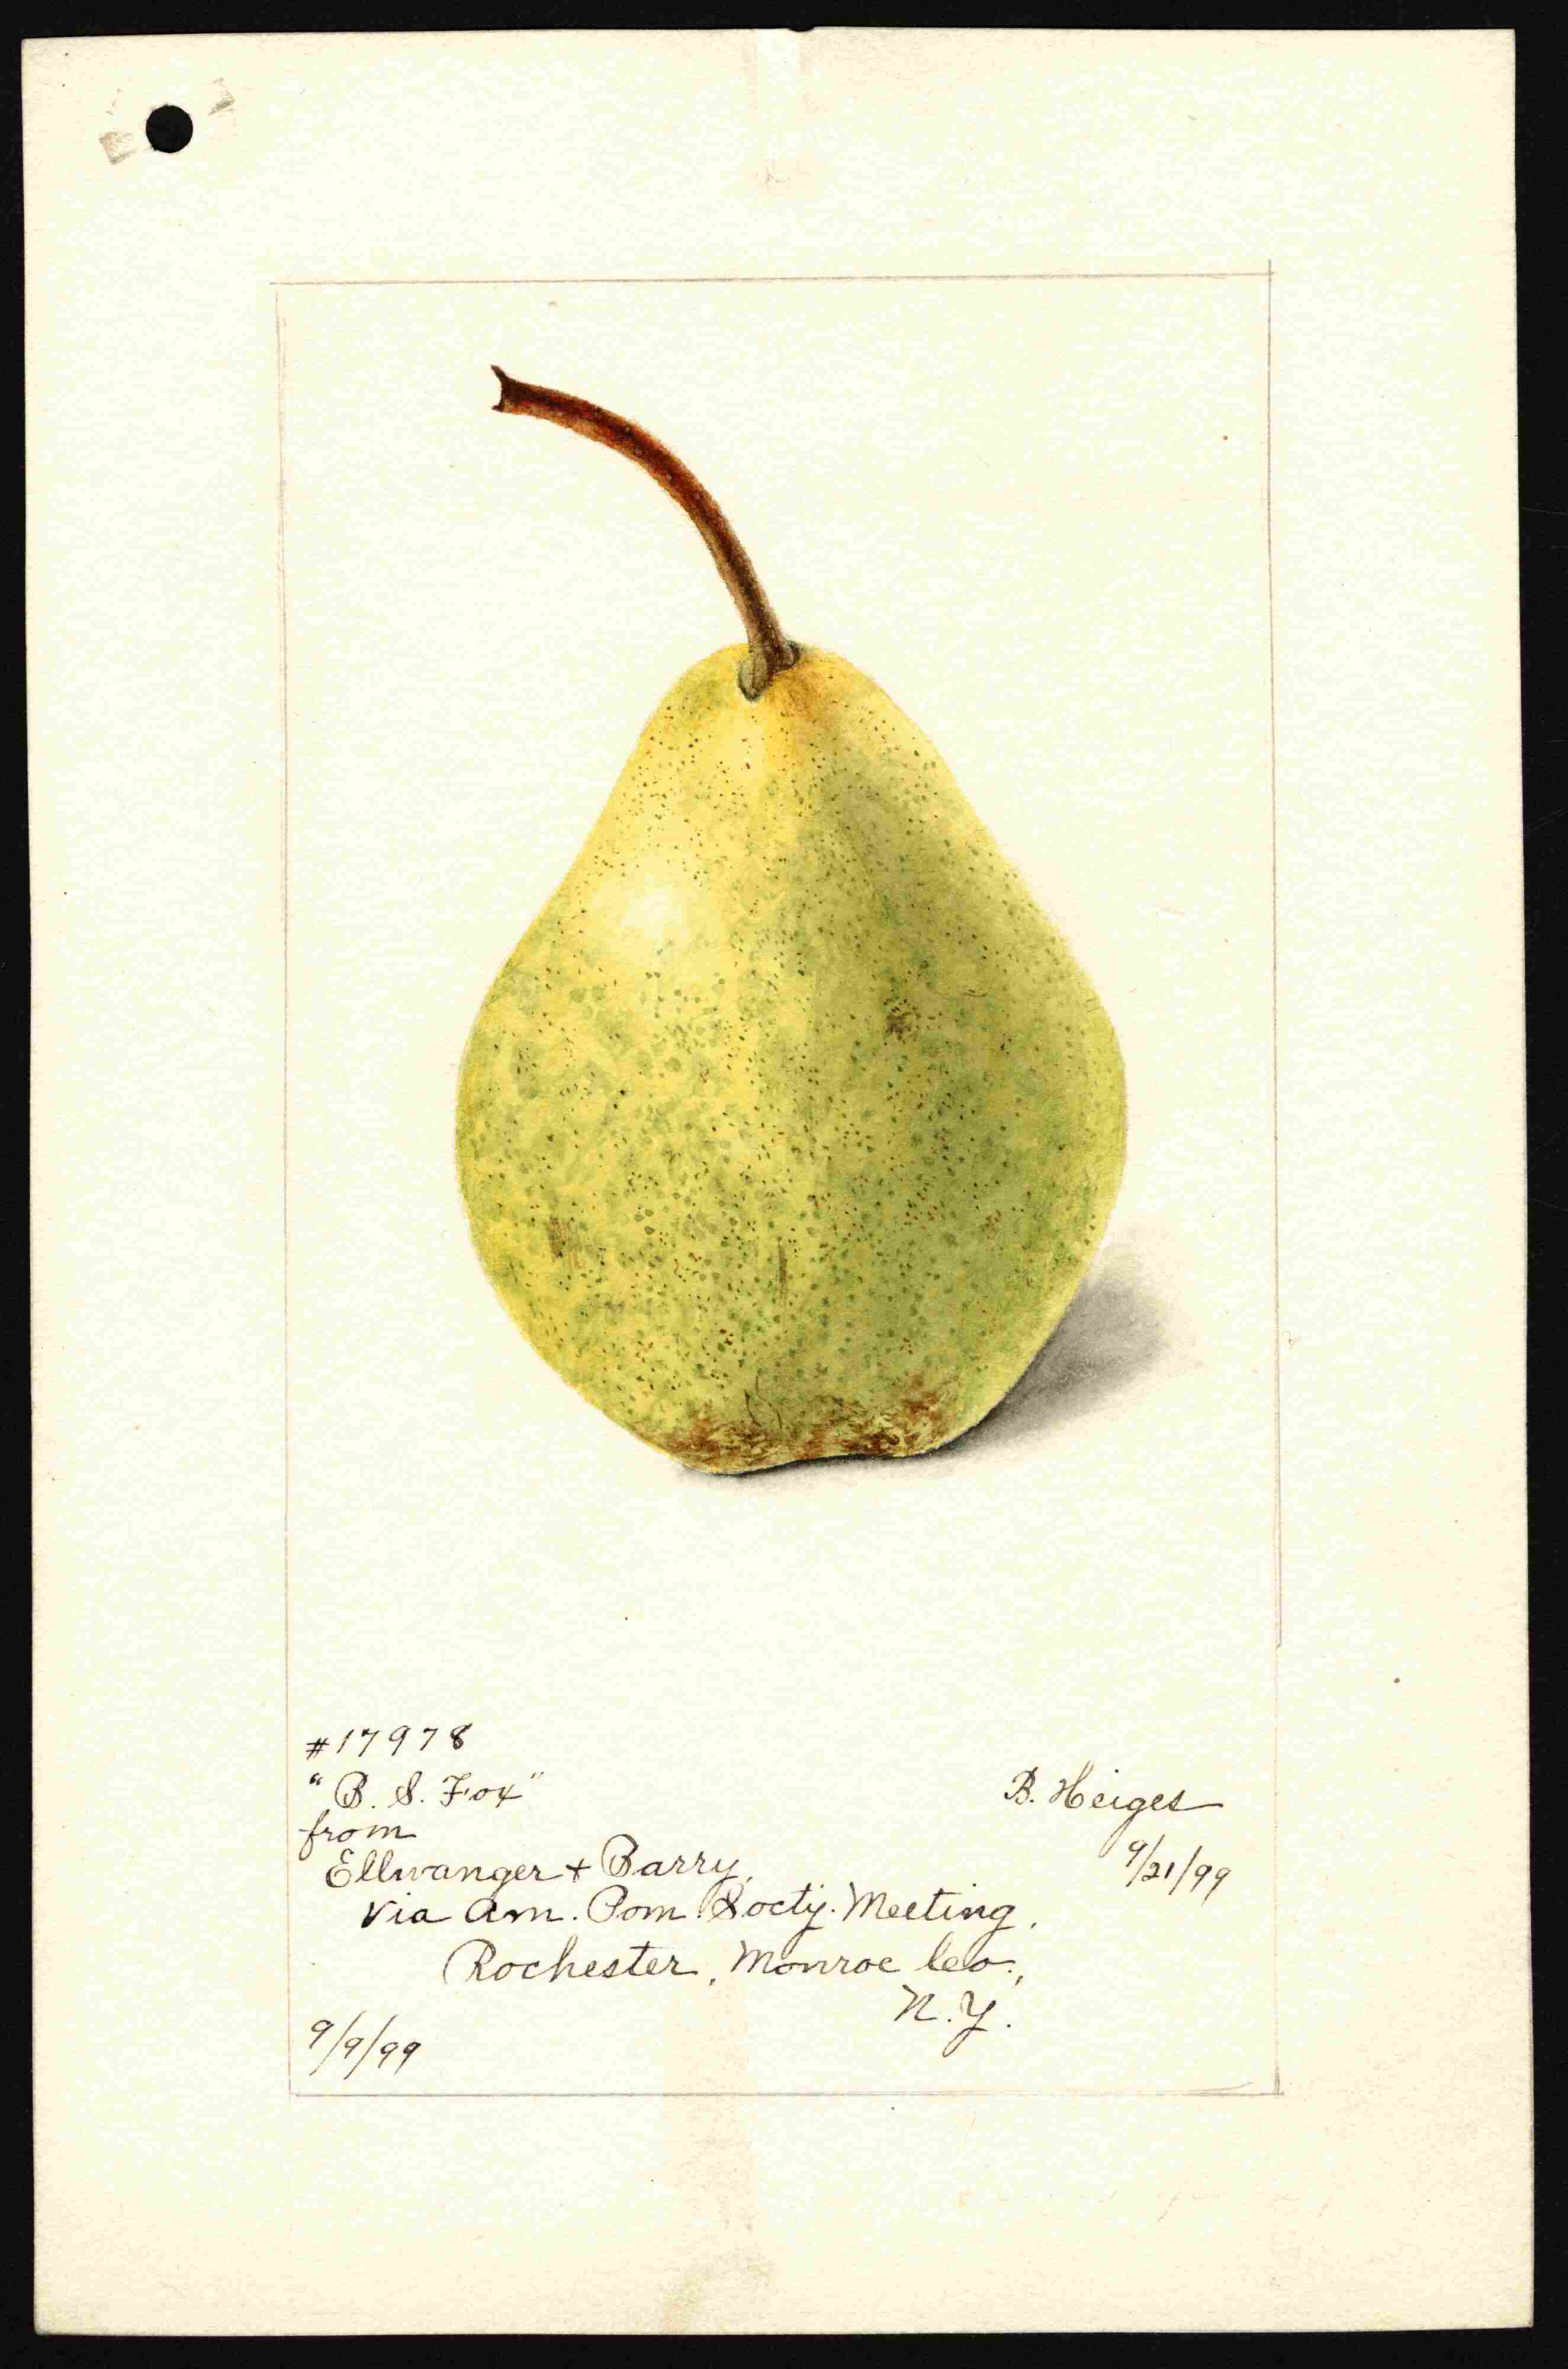 #17978
"B. S. Fox"
from
Ellwanger + Barry,
via Am. Pom. Socty. Meeting,
Rochester, Monroe Co.,
N.Y.
9/9/99
B. Heiges
9/21/99